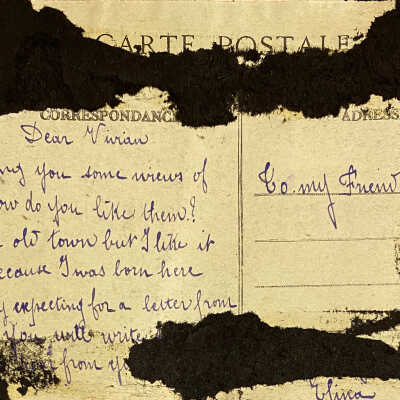 CARTE POSTALE
CORRESPONDANCE
ADRESS
Dear Vivian
ng you some views of
ow do you like them?
old town but I like it
ecause I was born here
y expecting for a letter from
You will write
from yo
To my Friend
Elina